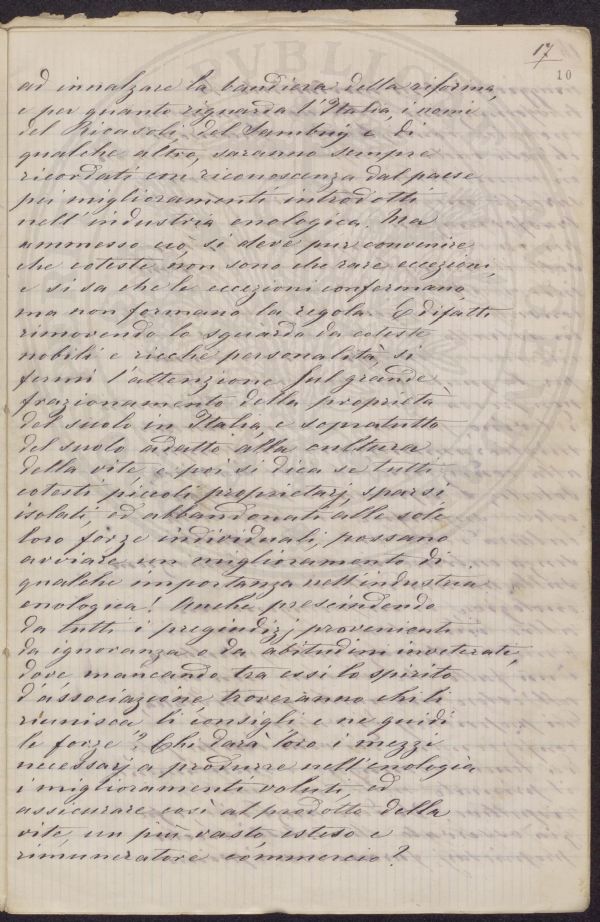 17
10
ad innalzare la bandiera della riforma,
e per quanto riguarda l'Italia, i nomi
del Ricasoli, del Sambuy e di
qualche altro, saranno sempre
ricordati con riconoscenza dal paese
pei miglioramenti introdotti
nell'industria enologica. Ma
ammesso ciò, si deve pur convenire
che coteste non sono che rare eccezioni,
e si sa che le eccezioni confermano,
ma non formano la regola. E difatti
rimovendo lo sguardo da coteste
nobili e ricche personalità, si
fermi l'attenzione sul grande
frazionamento della proprietà
del suolo in Italia, e sopratutto
del suolo adatto alla cultura
della vite, e poi si dica se tutti
cotesti piccoli proprietarj, sparsi
isolati, ed abbandonati alle sole
loro forze individuali, possano
avviare un miglioramento di
qualche importanza nell'industria
enologica! Anche prescindendo
da tutti i pregiudizj provenienti
da ignoranza o da abitudini inveterate,
dove mancando tra essi lo spirito
d'associazione, troveranno chi li
riunisca li consigli e ne guidi
le forze? Chi darà loro i mezzi
necessarj a produrre nell'enologia
i miglioramenti voluti, ed
assicurare così al prodotto della
vite, un più vasto esteso e
rimuneratore commercio?